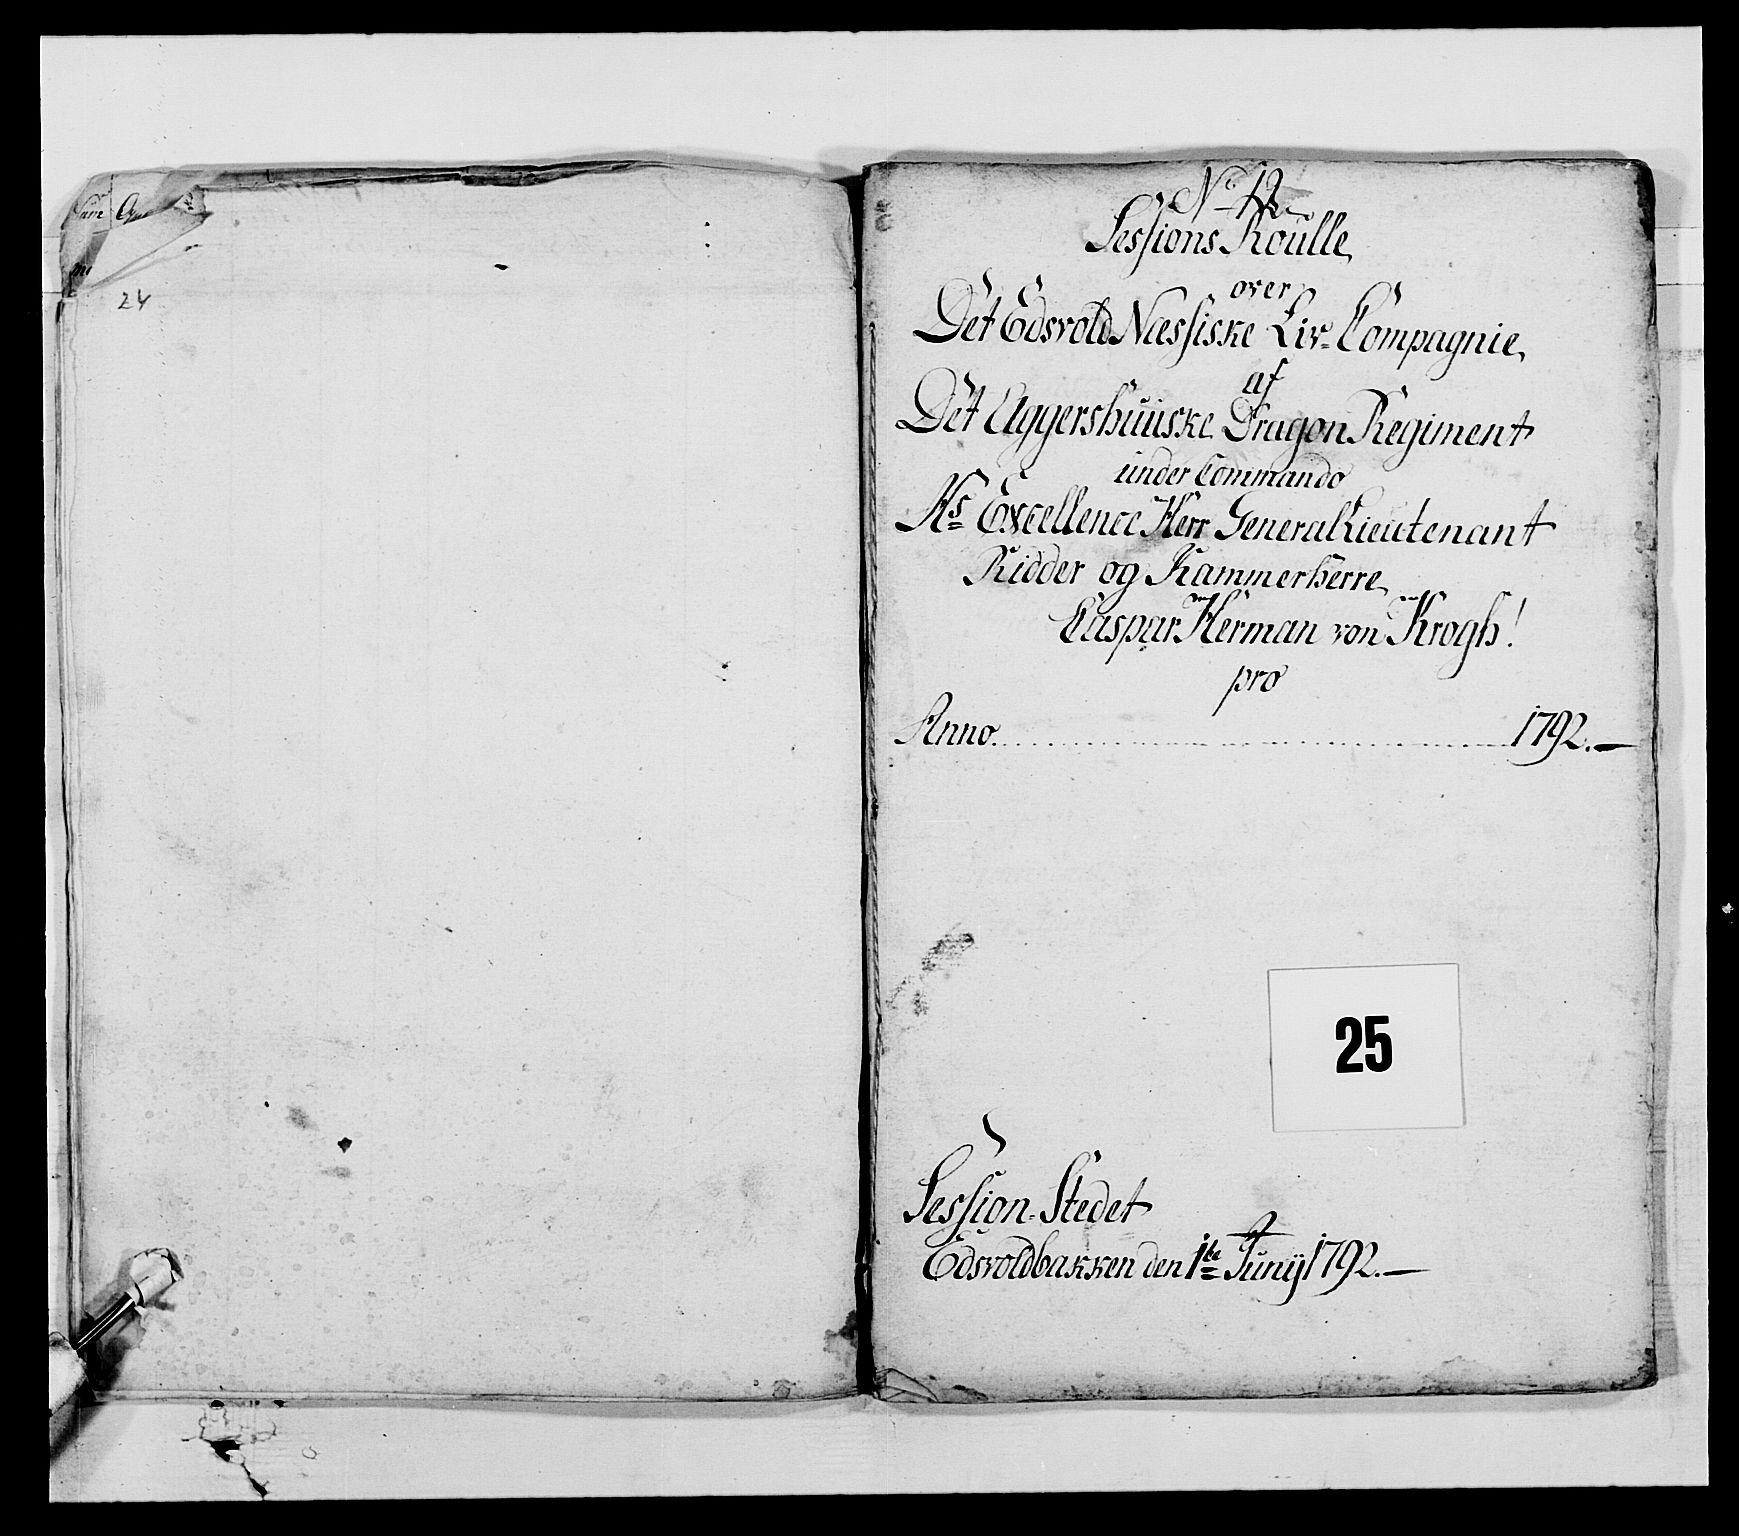 24
No 12
Sessions Roulle,
over
Det Edsvold Næssiske Liv-Compagnie,
af
Det Aggershuuske Dragon Regiment
under Commando
Hs Excellence Herr General Lieutenant
Ridder og Kammerherre,
Caspar Herman von Krogh!
pro
Anno. 1792.—
25
Session-Stedet
Edsvoldbakken den 1te Junij 1792.—